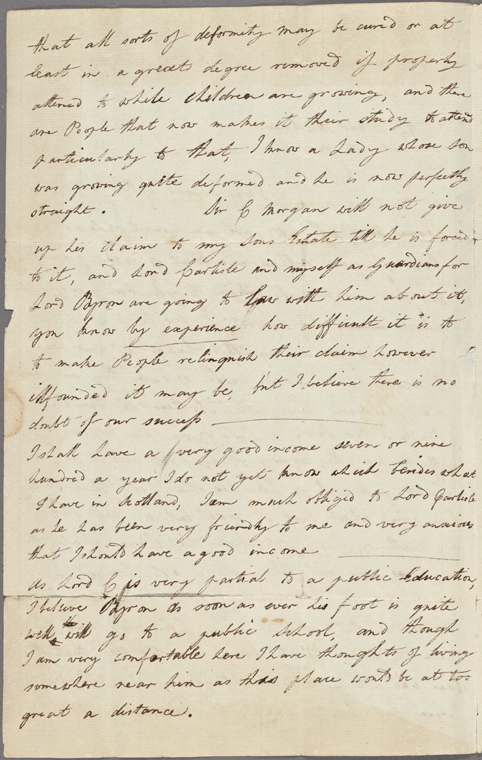 that all sorts of deformity may be cured or at
least in a great degree removed if properly
attened to while Children are growing, and there
are People that now makes it their study to attend
particularly to that, I know a Lady whose son
was growing quite deformed and he is now perfectly
straight. Sir C Morgan will not give
up his claim to my sons Estate till he is forced
to it, and Lord Carlisle and myself as Guardians for
Lord Byron are going to Law with him about it,
you know by experience how difficult it is to
to make People relinquish their claim however
illfounded it may be, but I believe there is no
doubt of our success
I shall have a very good income seven or nine
hundred a year I do not yet know which besides what
I have in Scotland, I am much obligid to Lord Carlisle
as he has been very friendly to me and very anxious
that I should have a good income
as Lord C is very partial to a public Education,
I believe Byron as soon as ever his foot is quite
well will go to a public School, and though
I am very comfortable here I have thoughts of living
somewhere near him as this place would be at too
great a distance.